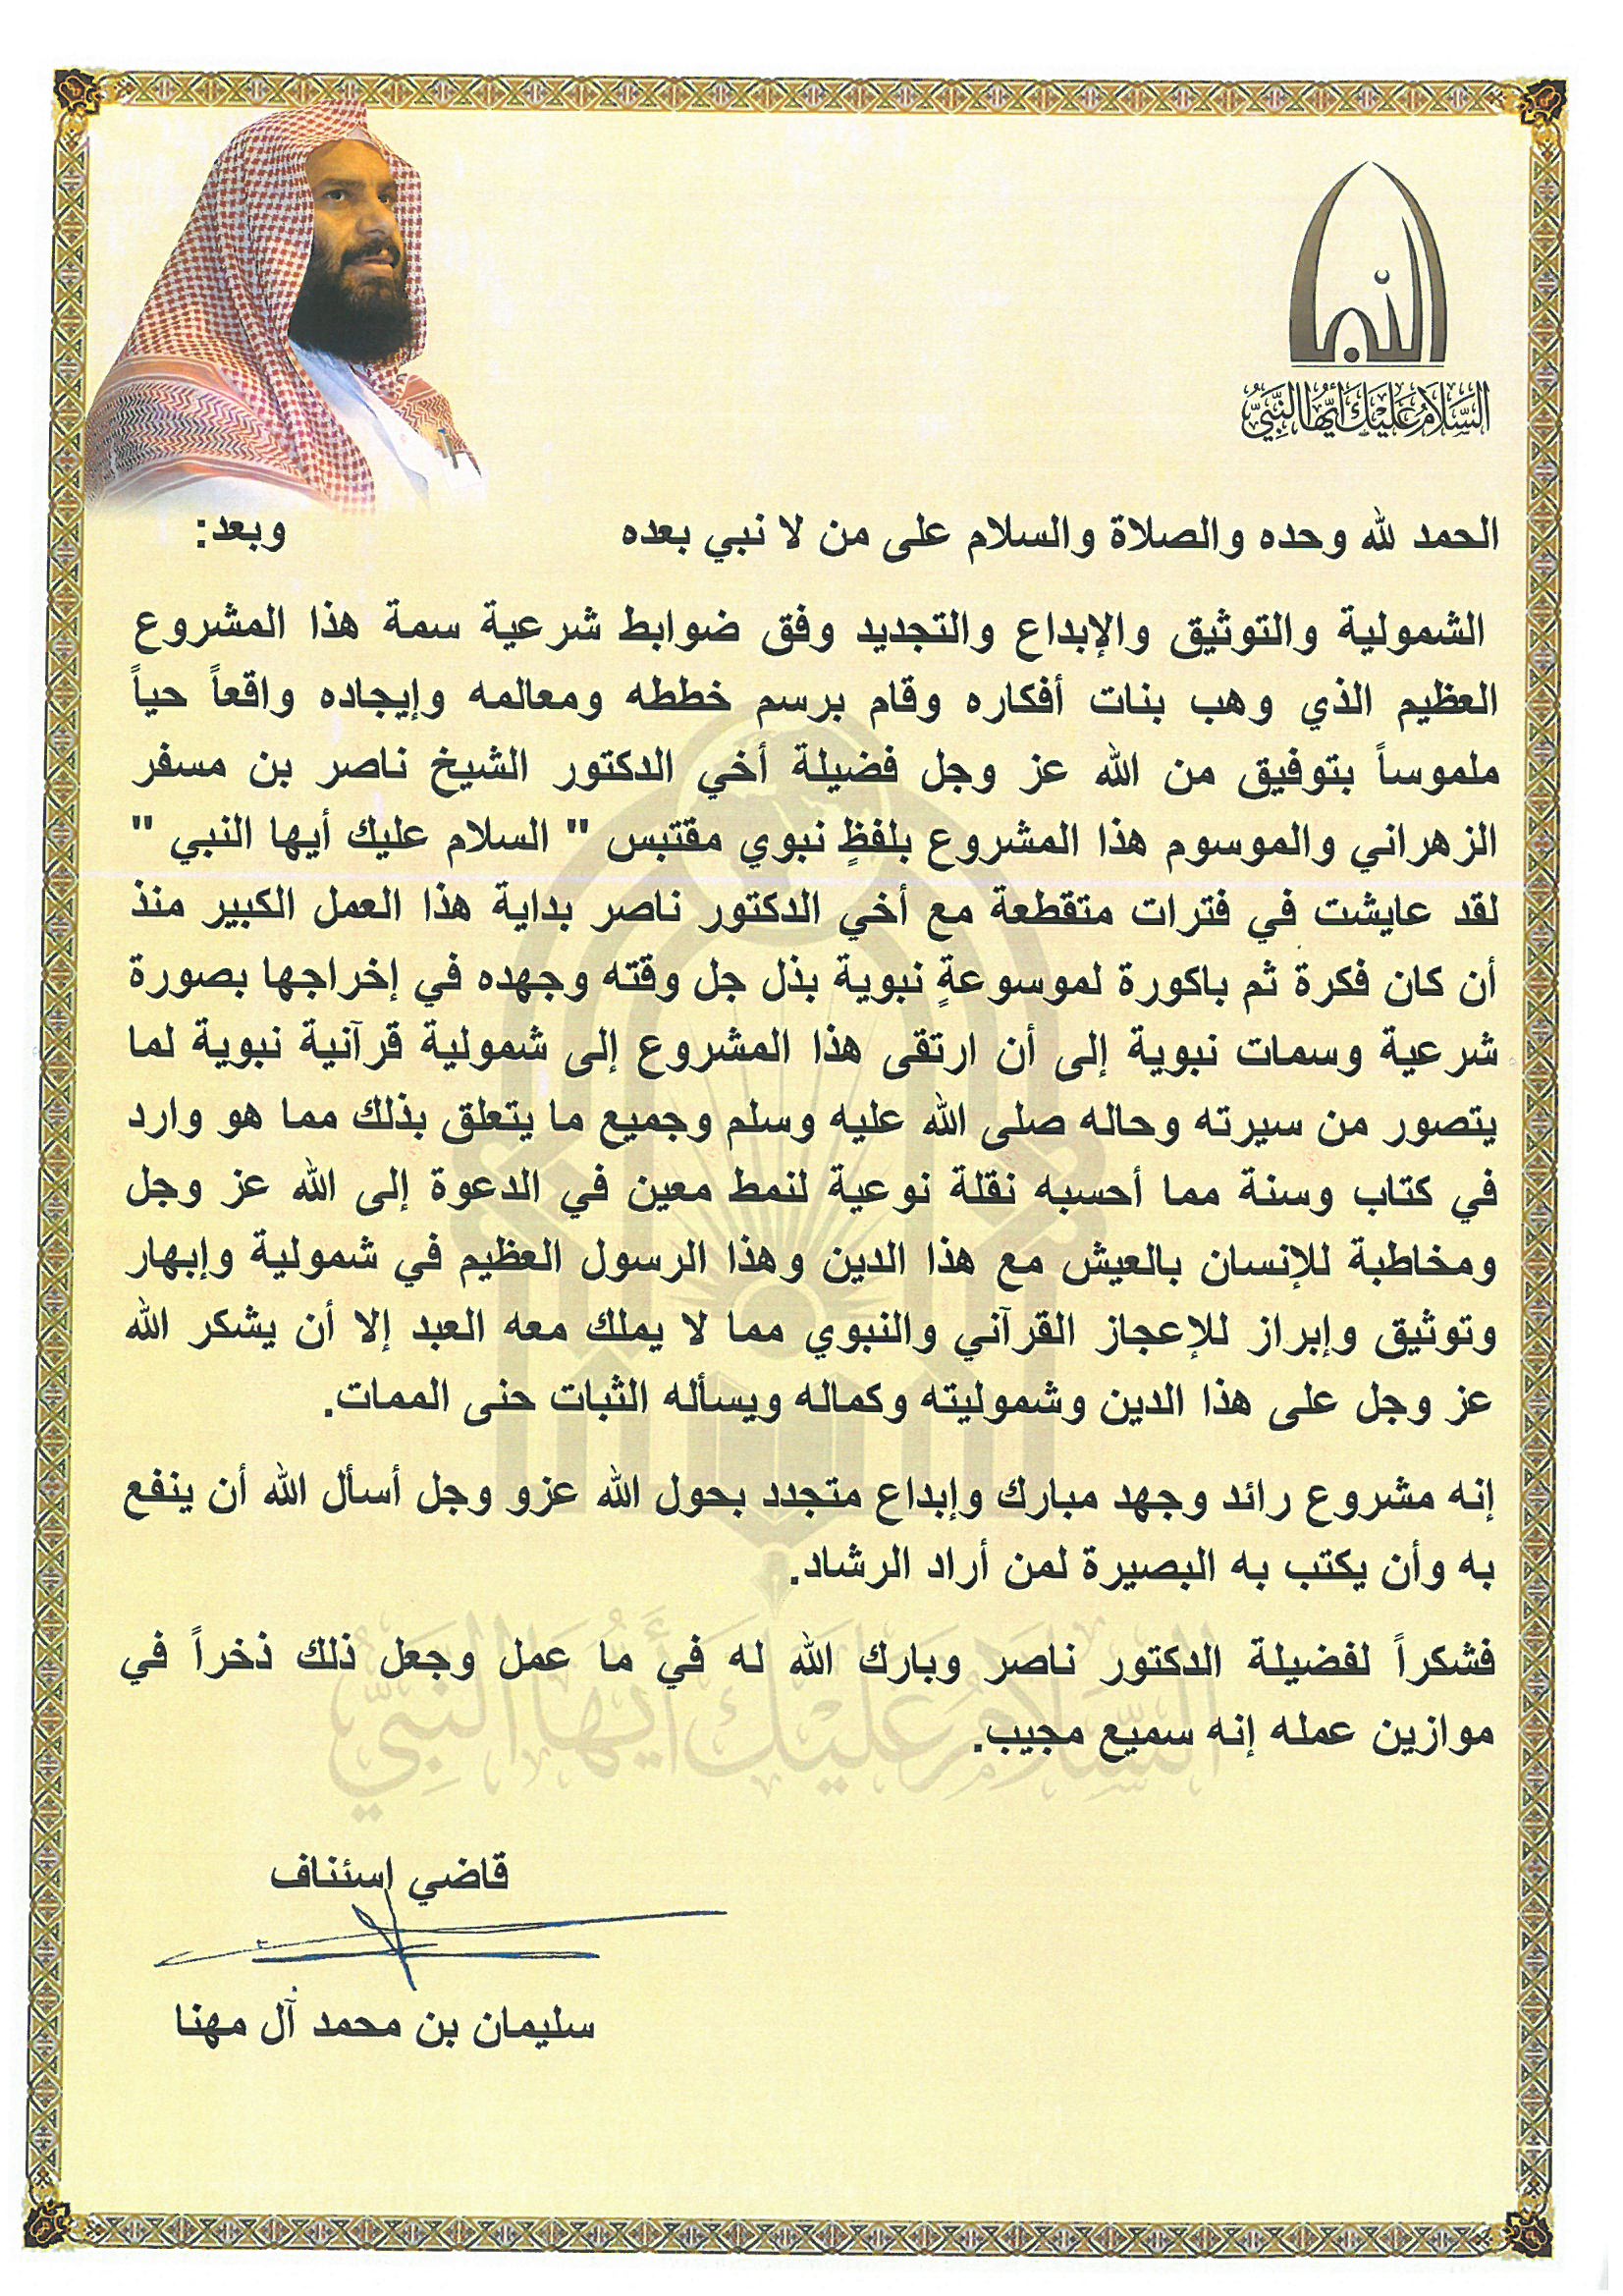 النبي
السَّلَامُ عَلَيْكَ أَيُّهَا النَّبِيُّ
الحمد لله وحده والصلاة والسلام على من لا نبي بعده وبعد:
الشمولية والتوثيق والإبداع والتجديد وفق ضوابط شرعية سمة هذا المشروع
العظيم الذي وهب بنات أفكاره وقام برسم خططه ومعالمه وإيجاده واقعاً حياً
ملموساً بتوفيق من الله عز وجل فضيلة أخي الدكتور الشيخ ناصر بن مسفر
الزهراني والموسوم هذا المشروع بلفظٍ نبوي مقتبس " السلام عليك أيها النبي "
لقد عايشت في فترات متقطعة مع أخي الدكتور ناصر بداية هذا العمل الكبير منذ
أن كان فكرة ثم باكورة لموسوعةٍ نبوية بذل جل وقته وجهده في إخراجها بصورة
شرعية وسمات نبوية إلى أن ارتقى هذا المشروع إلى شمولية قرآنية نبوية لما
يتصور من سيرته وحاله صلى الله عليه وسلم وجميع ما يتعلق بذلك مما هو وارد
في كتاب وسنة مما أحسبه نقلة نوعية لنمط معين في الدعوة إلى الله عز وجل
ومخاطبة للإنسان بالعيش مع هذا الدين وهذا الرسول العظيم في شمولية وإبهار
وتوثيق وإبراز للإعجاز القرآني والنبوي مما لا يملك معه العبد إلا أن يشكر الله
عز وجل على هذا الدين وشموليته وكماله ويسأله الثبات حنى الممات.
إنه مشروع رائد وجهد مبارك وإبداع متجدد بحول الله عزو وجل أسأل الله أن ينفع
به وأن يكتب به البصيرة لمن أراد الرشاد.
فشكراً لفضيلة الدكتور ناصر وبارك الله له في ما عمل وجعل ذلك ذخراً في
موازين عمله إنه سميع مجيب.
السَّلَامُ عَلَيْكَ أَيُّهَا النَّبِيُّ
قاضي إسئناف
سليمان بن محمد آل مهنا